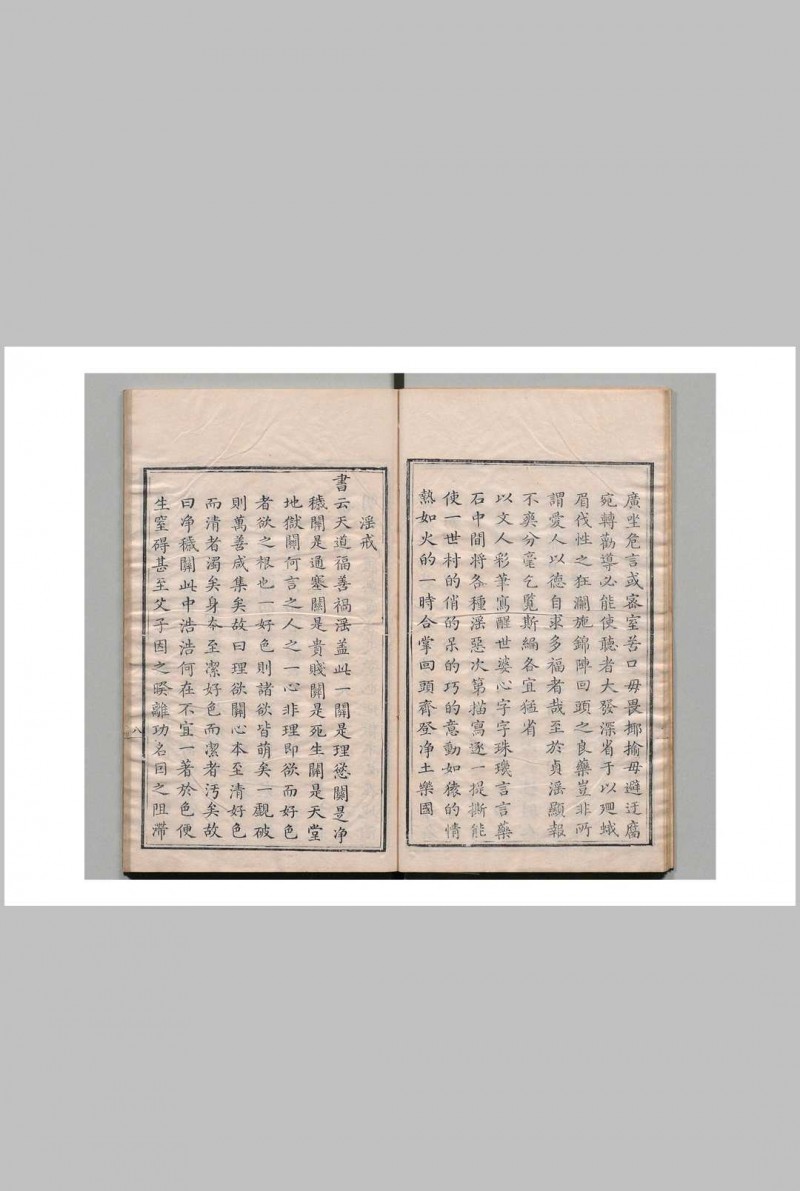 廣坐危言或密室苦口毋畏揶揄毋避迂腐
宛轉勸導必能使聽者大發深省于以廻蛾
眉伐性之狂瀾施錦陣回頭之良藥豈非所
謂愛人以德自求多福者哉至於貞淫顯報
不爽分毫乞覧斯編各宜猛省
以文人彩筆寫醒世婆心字字珠璣言言藥
石中間將各種淫惡次第描寫逐一提撕能
使一世村的俏的呆的巧的意動如猿的情
熱如火的一時合掌回頭齊登净土樂國
淫戒
書云天道福善禍淫蓋此一關是理慾關是净
穢關是通塞關是貴賤關是死生關是天堂
地獄關何言之人之一心非理即欲而好色
者欲之根也一好色則諸欲皆萌矣一觑破
則萬善咸集矣故曰理欲關心本至清好色
而清者濁矣身本至潔好色而潔者汚矣故
曰净穢關此中浩浩何在不宜一著於色便
生窒碍甚至父子因之暌離功名因之阻滯
八